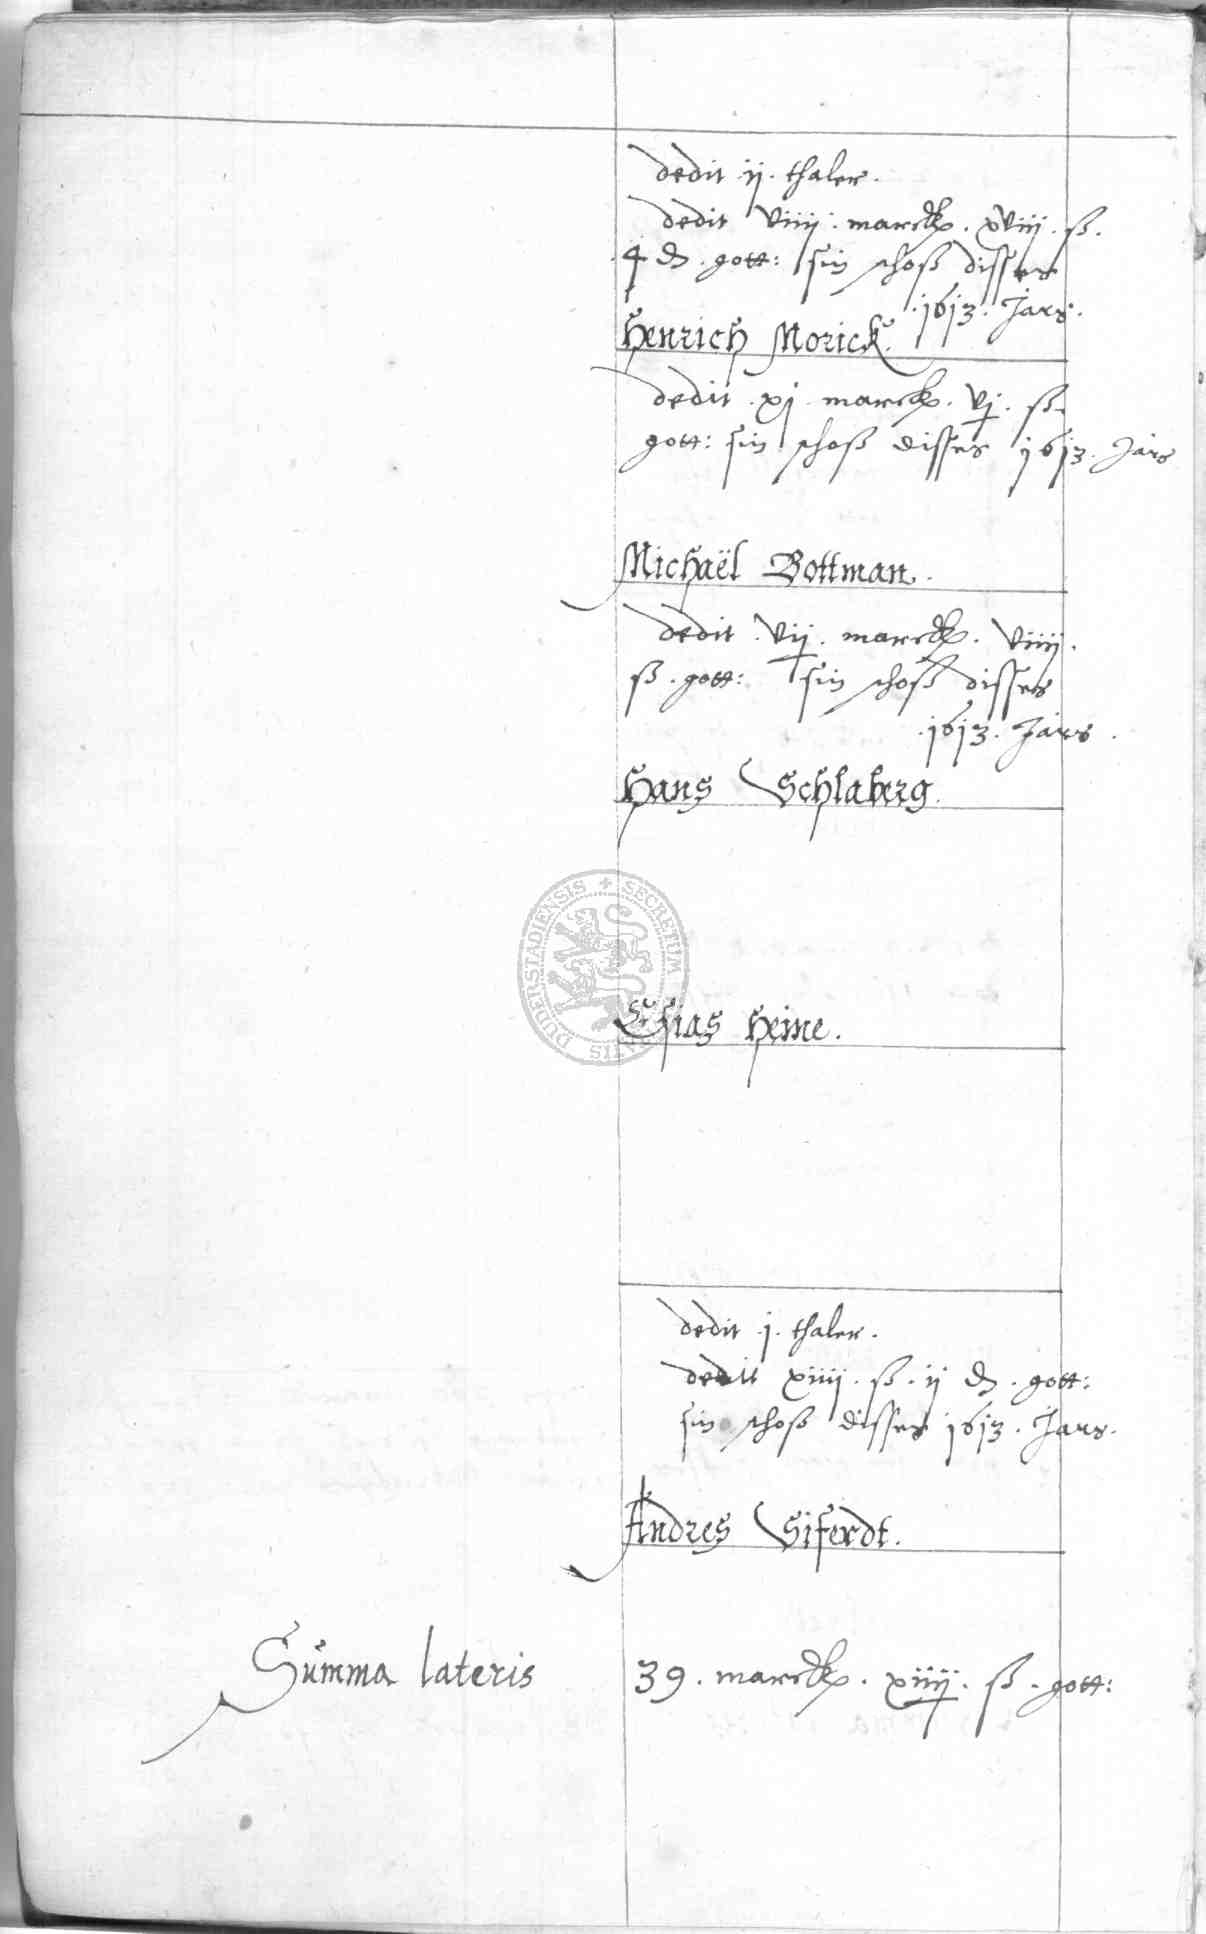 dedit ij. thaler.
dedit viiij. marck. xviij. ß.
4 ₰. gott: sin schoß disses
.1613. Jars.
Henrich Morick.
dedit . xj . marck. vj. ß.
gott: sin schoß disses 1613. Jars
Michaël Bottman.
dedit . vij. marck. viiij.
ß. gott: sin schoß disses
.1613. Jars.
Hans Schlaberg.
SECRETUM
DUDERSTADIENSIS
Esias Heine.
dedit .j. thaler.
dedit xiiij. ß. ij ₰. gott:
sin schoß disses 1613. Jars.
Andres Siferdt.
Summa lateris 39. marck. xiiij. ß. gott: